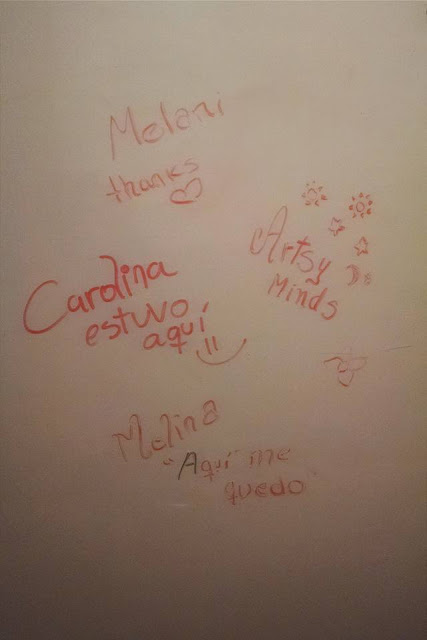 Melani
thanks
Artsy
Minds
Carolina
estuvo
aquí
Melina
"Aquí me
quedo